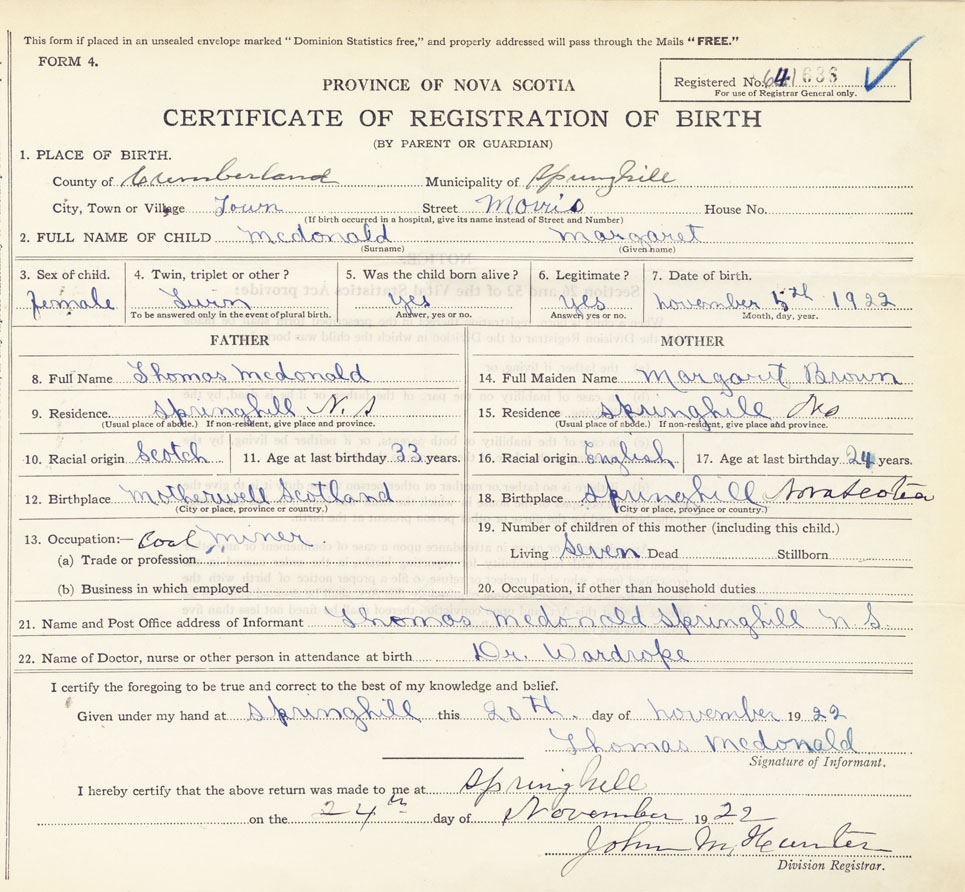 This form if placed in an unsealed envelope marked "Dominion Statistics free," and properly addressed will pass through the Mails "FREE."
FORM 4.
PROVINCE OF NOVA SCOTIA
Registered No. 641636
For use of Registrar General only.
CERTIFICATE OF REGISTRATION OF BIRTH
(BY PARENT OR GUARDIAN)
1. PLACE OF BIRTH.
County of Cumberland Municipality of Springhill
City, Town or Village Town Street Morris House No.
(If birth occurred in a hospital, give its name instead of Street and Number)
2. FULL NAME OF CHILD Mcdonald Margaret
(Surname) (Given name)
3. Sex of child. 4. Twin, triplet or other? 5. Was the child born alive? 6. Legitimate? 7. Date of birth.
female Twin yes yes november 5th 1922
To be answered only in the event of plural birth. Answer, yes or no. Answer, yes or no. Month, day, year.
FATHER MOTHER
8. Full Name Thomas Mcdonald 14. Full Maiden Name Margaret Brown
9. Residence Springhill N. S 15. Residence Springhill
(Usual place of abode.) If non-resident, give place and province. (Usual place of abode.) If non-resident, give place and province.
10. Racial origin Scotch 11. Age at last birthday 33 years. 16. Racial origin English 17. Age at last birthday 24 years.
12. Birthplace Motherwell Scotland 18. Birthplace Springhill Nova Scotia
(City or place, province or country.) (City or place, province or country.)
13. Occupation:— Coal Miner. 19. Number of children of this mother (including this child.)
(a) Trade or profession Living Seven Dead Stillborn
(b) Business in which employed 20. Occupation, if other than household duties
21. Name and Post Office address of Informant Thomas Mcdonald Springhill N. S.
22. Name of Doctor, nurse or other person in attendance at birth Dr. Wardrope
I certify the foregoing to be true and correct to the best of my knowledge and belief.
Given under my hand at Springhill this 20th. day of november 1922
Thomas Mcdonald
Signature of Informant.
I hereby certify that the above return was made to me at Springhill
on the 24th day of November 1922
John M. Hunter
Division Registrar.